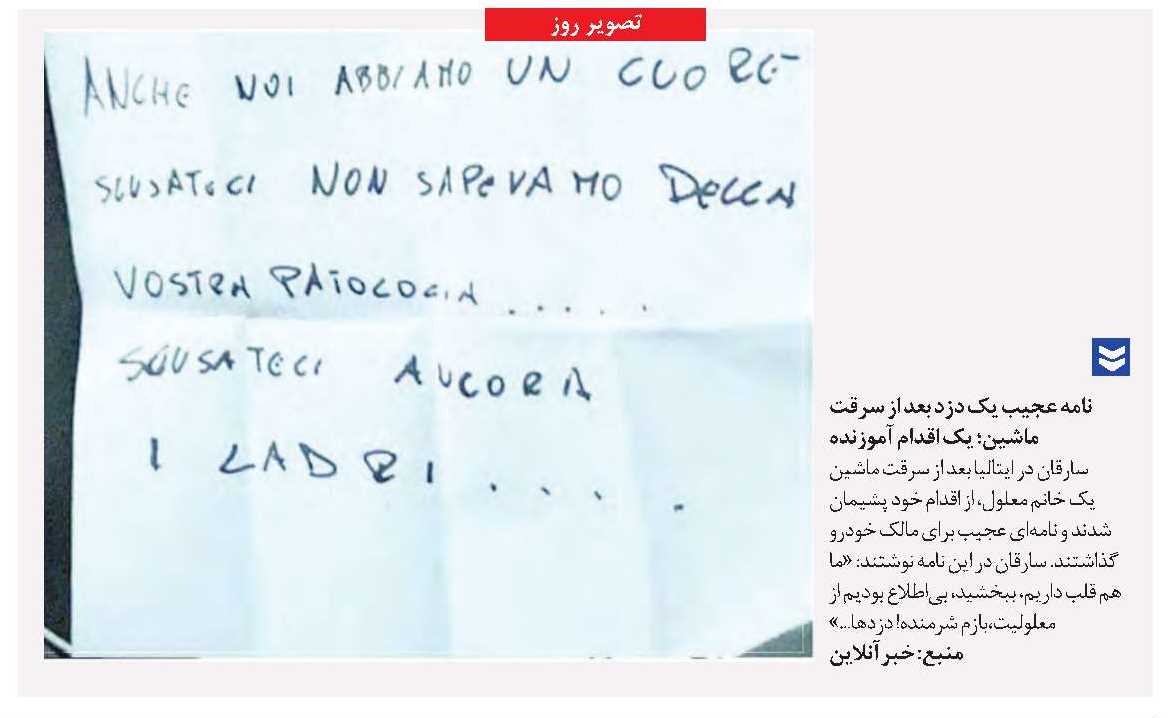 تصویر روز
ANCHE NOI ABBIAMO UN CUORE
SCUSATECI NON SAPEVAMO DELLA
VOSTRA PATOLOGIA .....
SCUSATECI ANCORA
I LADRI .....
نامه عجیب یک دزد بعد از سرقت
ماشین؛ یک اقدام آموزنده
سارقان در ایتالیا بعد از سرقت ماشین
یک خانم معلول، از اقدام خود پشیمان
شدند و نامه‌ای عجیب برای مالک خودرو
گذاشتند. سارقان در این نامه نوشتند: «ما
هم قلب داریم، ببخشید، بی‌اطلاع بودیم از
معلولیت، بازم شرمنده! دزدها...»
منبع: خبرآنلاین